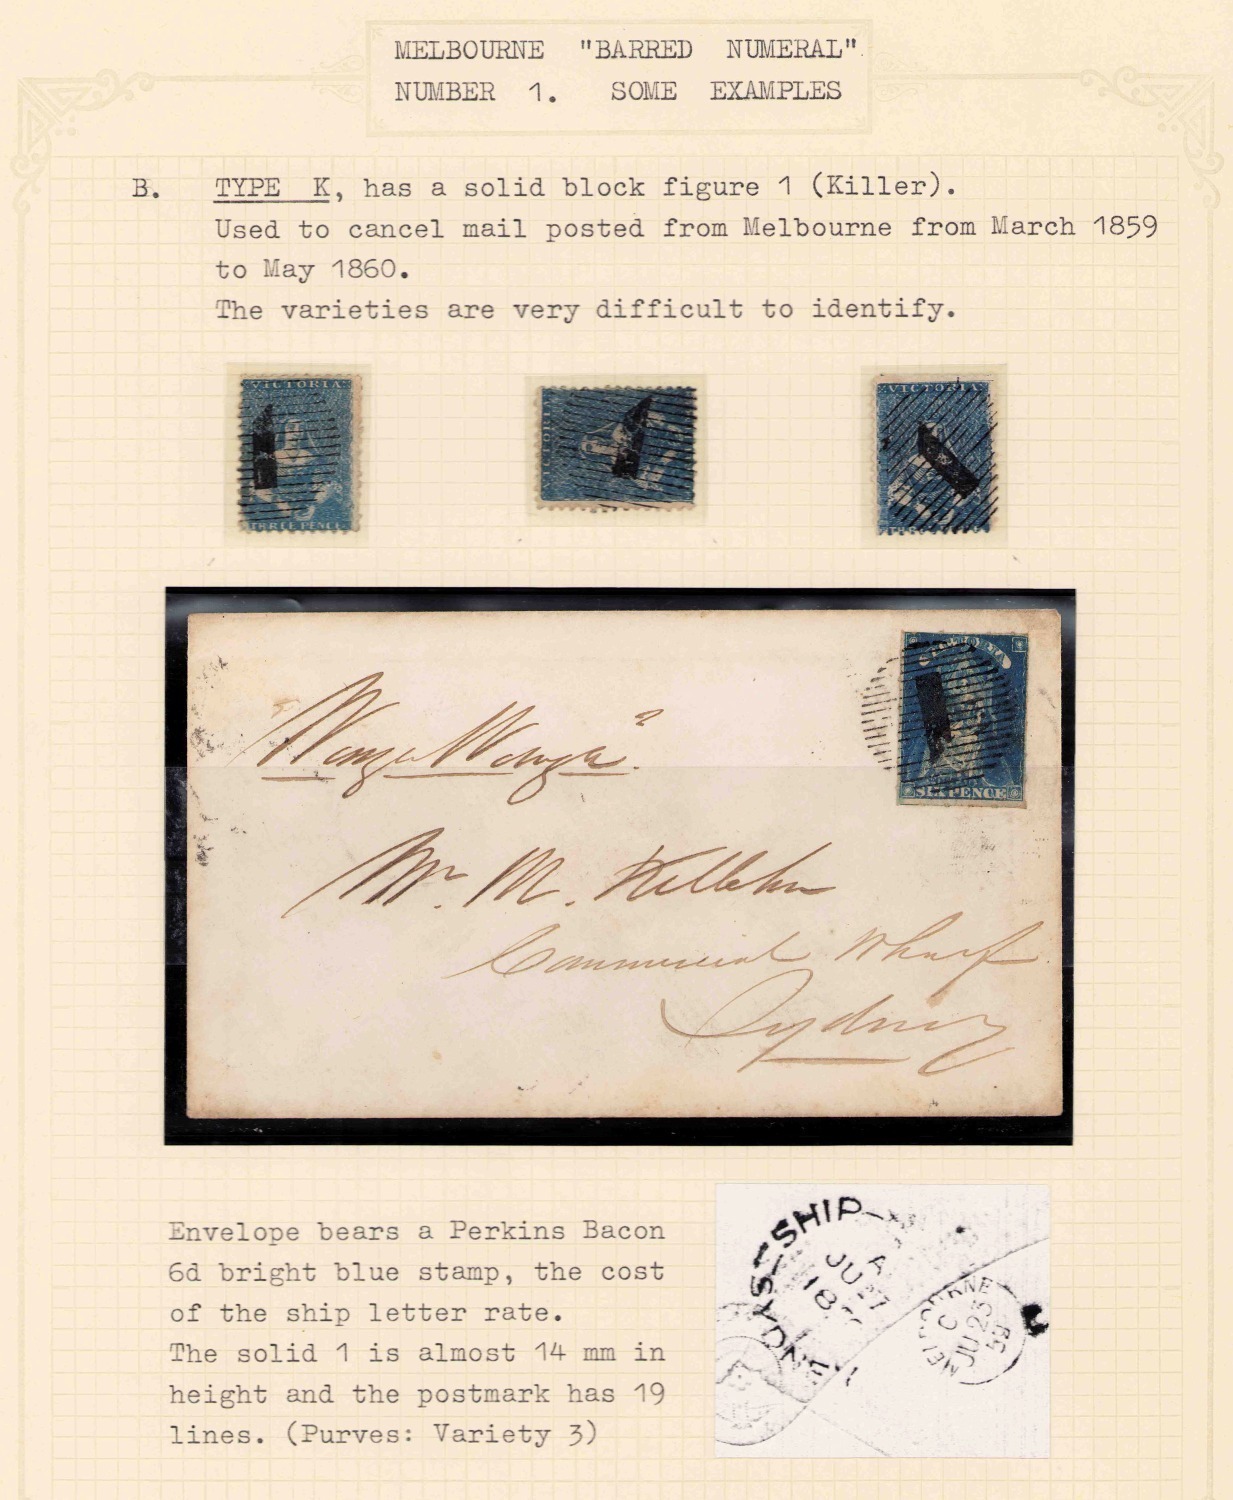 MELBOURNE "BARRED NUMERAL"
NUMBER 1. SOME EXAMPLES
B. TYPE K, has a solid block figure 1 (Killer).
Used to cancel mail posted from Melbourne from March 1859
to May 1860.
The varieties are very difficult to identify.
VICTORIA
THREE PENCE
VICTORIA
VICTORIA
SIXPENCE
"Wonga Wonga"
Mr. M. Kellehn
Commercial Wharf
Sydney
Envelope bears a Perkins Bacon
6d bright blue stamp, the cost
of the ship letter rate.
The solid 1 is almost 14 mm in
height and the postmark has 19
lines. (Purves: Variety 3)
SHIP
A
JU 27
18
SYDNEY
MELBOURNE
C
JU 23
59